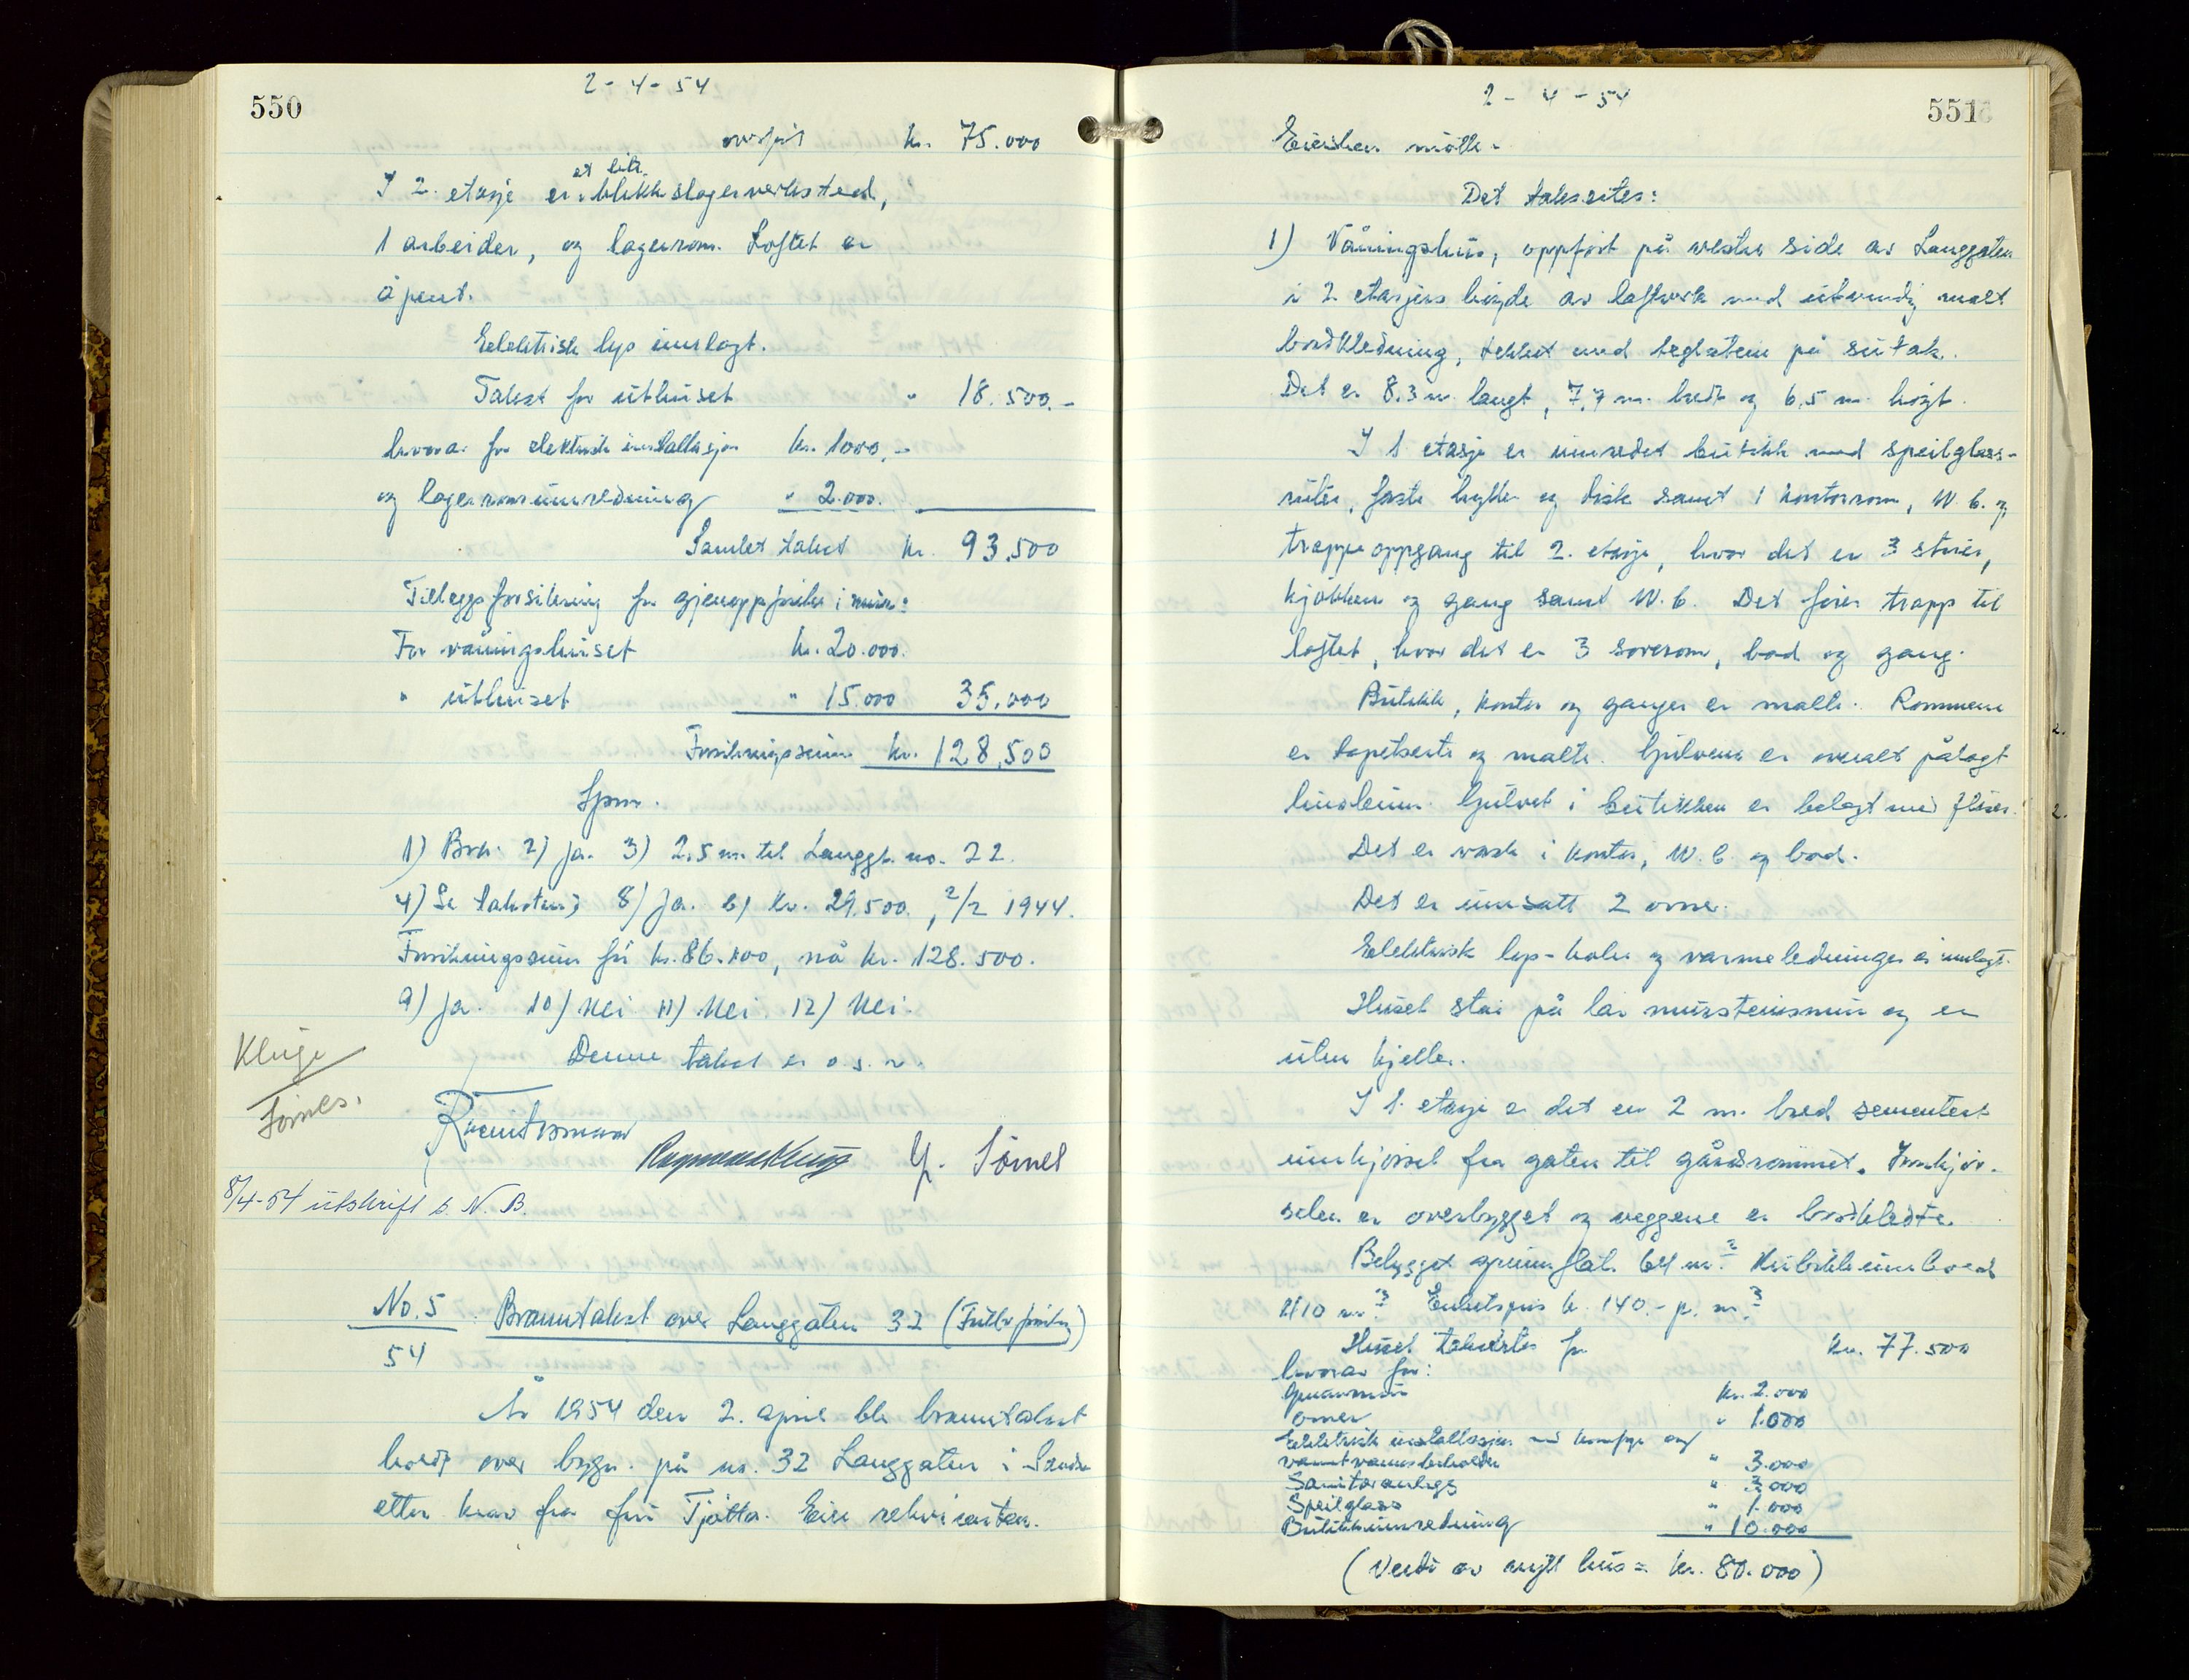 550
2-4-54
overført kr. 75.000
I 2. etasje er et lite blikkslagerverksted,
1 arbeider, og lagerrom. Loftet er
åpent.
Eelektrisk lys innlagt.
Takst for uthuset " 18.500.-
hvorav for elektrisk installasjon kr. 1000.-
og lagerromsinnredning " 2.000.
Samlet takst kr. 93.500
Tilleggsforsikring for gjenoppførelse i mur:
For våningshuset kr. 20.000.
" uthuset " 15.000 35.000
Forsikringssum kr. 128.500
Spm.
1) Bra. 2) Ja. 3) 2.5 m. til Langgt. no. 22.
4) Se taksten; 8) Ja. b) kr. 29.500., 2/2 1944.
Forsikringssum før kr. 86.100, nå kr. 128.500.
9) Ja. 10) Nei 11) Nei. 12) Nei.
Denne takst er o.s.v.
Kluge
Tørnes.
8/4-54 utskrift s. N. B.
No. 5
54
Branntakst over Langgaten 32 (Full forsikring)
År 1954 den 2. april ble branntakst
holdt over bygn. på nr. 32 Langgaten i Sandnes
etter krav fra fru Tjøtta. Eier rekvirenten.
551
2-4-54
Eiersken møtte.
Det takseres:
1) Våningshus, oppført på vestre side av Langgaten
i 2 etasjers høyde av lafteverk med utvendig malt
bordkledning, tekket med teglsten på sutak.
Det er 8.3 m. langt, 7,7 m. bredt og 6,5 m. høgt.
I 1 etasje er innredet butikk med speilglass-
ruter, faste hyller og disk samt 1 kontorrom, W.C. og
trappeoppgang til 2. etasje, hvor det er 3 stuer,
kjøkken og gang samt W.C. Det fører trapp til
loftet, hvor det er 3 soverom, bad og gang.
Butikk, kontor og ganger er malte. Rommene
er tapetserte og malte. Gulvene er overalt pålagt
linoleum. Gulvet i butikken er belagt med fliser.
Det er vask i kontor, W.C. og bad.
Det er innsatt 2 ovner.
Eelektrisk lys- koke- og varmeledninger er innlagt.
Huset står på lav murstensmur og er
uten kjeller.
I 1. etasje er det en 2 m. bred sementert
innkjørsel fra gaten til gårdsrommet. Innkjør-
selen er overbygget og veggene er bordkledte.
Bebygget grunnflate 64 m.2 Kubikkinnhold
410 m.3 Enhetspris kr. 140.- p. m.3
Huset takseres for kr. 77.500
hvorav for:
Grunnmur kr. 2.000
Ovner " 1.000
Eelektrisk installasjon med komfyr og
varmtvannsbeholder " 3.000
Sanitæranlegg " 3.000
Speilglass " 1.000
Butikkinnredning " 10.000
(Verdi av nytt hus = kr. 80.000)